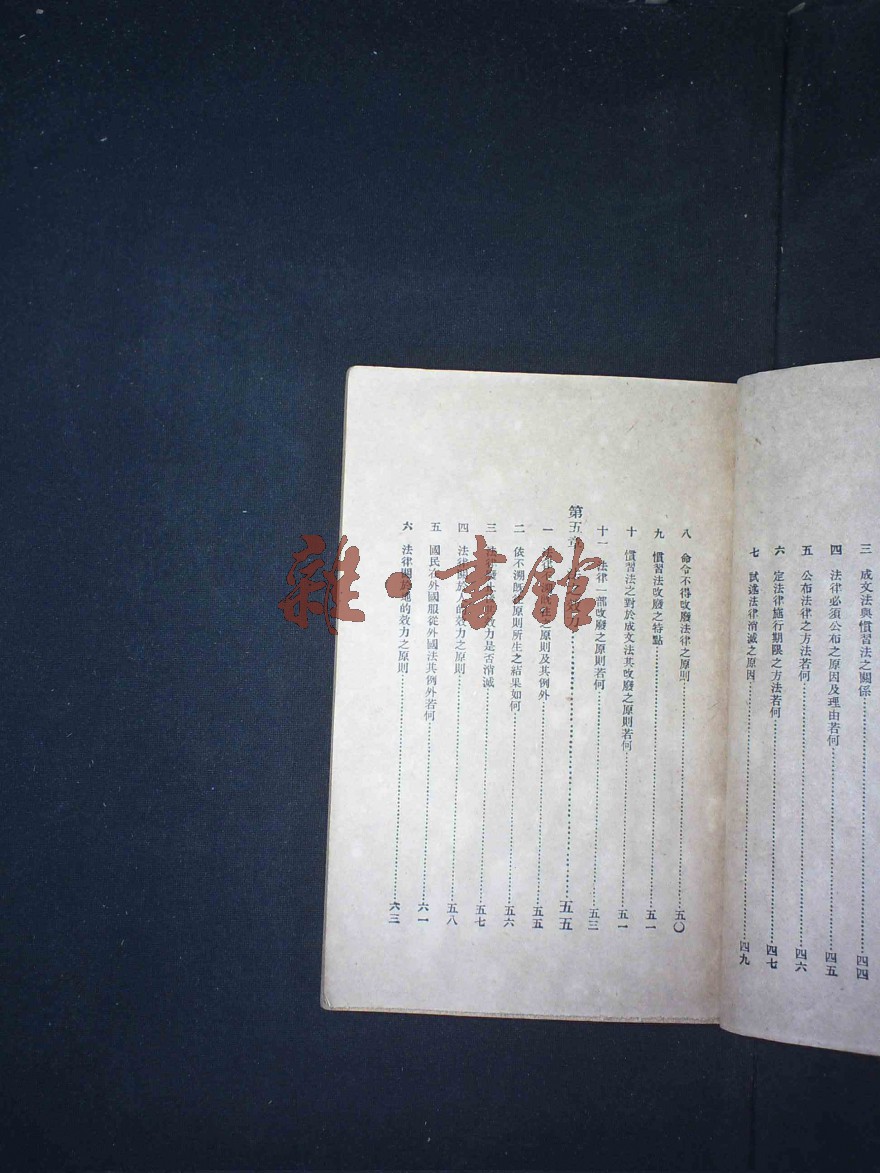 三 成文法與慣習法之關係 四四
四 法律必須公布之原因及理由若何 四五
五 公布法律之方法若何 四六
六 定法律施行期限之方法若何 四七
七 試述法律消滅之原因 四九
八 命令不得改廢法律之原則 五〇
九 慣習法改廢之特點 五一
十 慣習法之對於成文法其改廢之原則若何 五一
十一 法律一部改廢之原則若何 五三
第五章 五五
一 法律 之原則及其例外 五五
二 依不溯既 原則所生之結果如何 五六
三 效力是否消滅 五七
四 法律關於 的效力之原則 五八
五 國民在外國服從外國法其例外若何 六一
六 法律關於地的效力之原則 六三
雜·書館